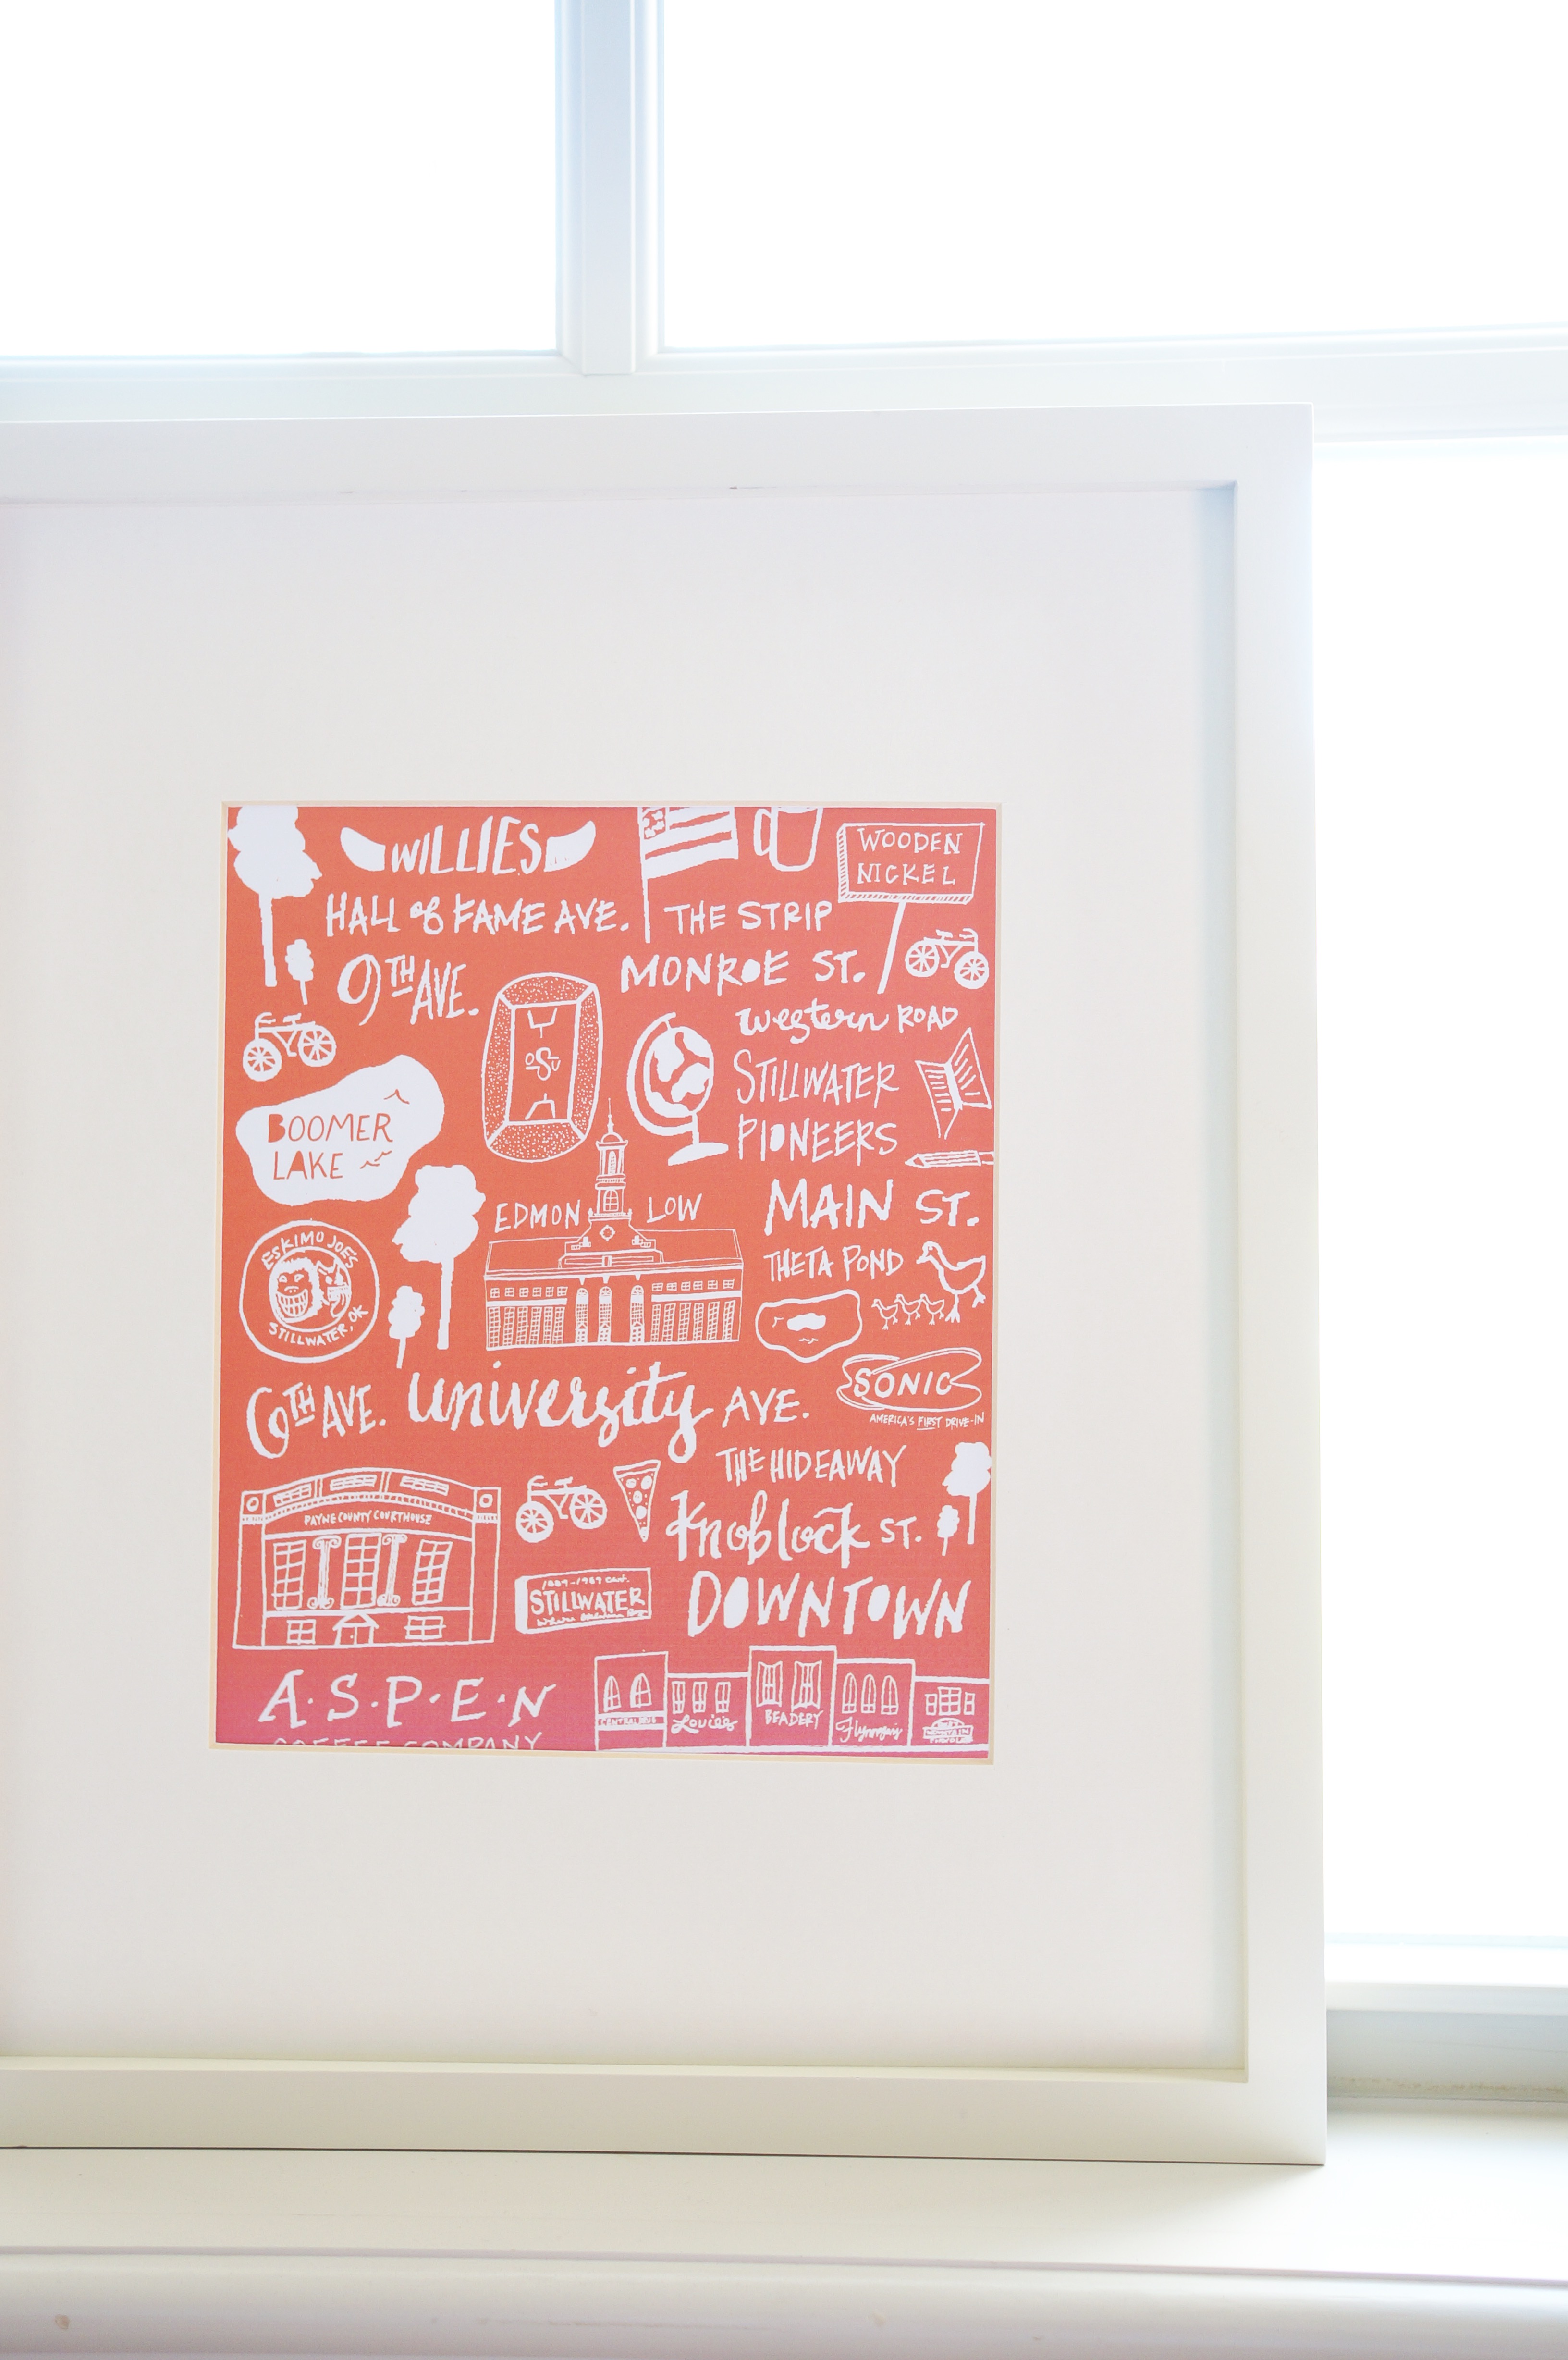 WILLIES
WOODEN
NICKEL
HALL of FAME AVE.
THE STRIP
9TH AVE.
MONROE ST.
western ROAD
OSU
STILLWATER
PIONEERS
BOOMER
LAKE
EDMON LOW
MAIN ST.
THETA POND
ESKIMO JOE'S
STILLWATER, OK
6TH AVE.
university AVE.
SONIC
AMERICA'S FIRST DRIVE-IN
THE HIDEAWAY
PAYNE COUNTY COURTHOUSE
Knoblock ST.
STILLWATER
DOWNTOWN
A.S.P.E.N
COFFEE COMPANY
CENTRAL DRUG
Louies
BEADERY